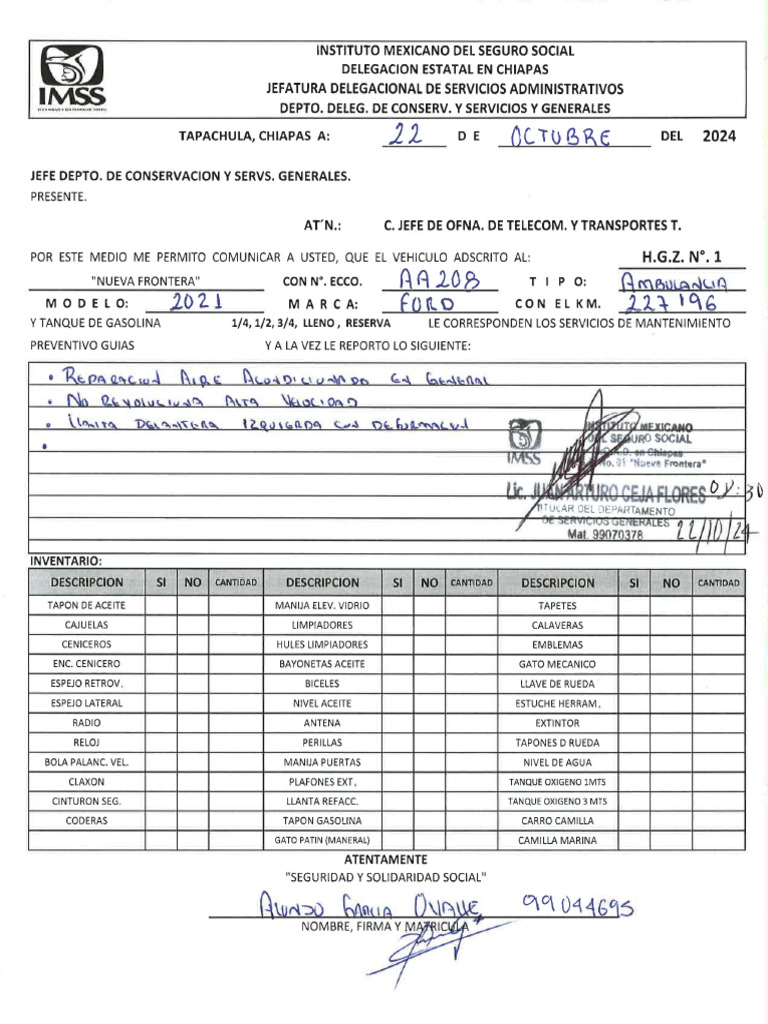 IMSS
SEGURIDAD Y SOLIDARIDAD SOCIAL
INSTITUTO MEXICANO DEL SEGURO SOCIAL
DELEGACION ESTATAL EN CHIAPAS
JEFATURA DELEGACIONAL DE SERVICIOS ADMINISTRATIVOS
DEPTO. DELEG. DE CONSERV. Y SERVICIOS Y GENERALES
TAPACHULA, CHIAPAS A: 22 DE OCTUBRE DEL 2024
JEFE DEPTO. DE CONSERVACION Y SERVS. GENERALES.
PRESENTE.
AT´N.: C. JEFE DE OFNA. DE TELECOM. Y TRANSPORTES T.
POR ESTE MEDIO ME PERMITO COMUNICAR A USTED, QUE EL VEHICULO ADSCRITO AL: H.G.Z. N°. 1
"NUEVA FRONTERA" CON N°. ECCO. AA208 TIPO: AMBULANCIA
MODELO: 2021 MARCA: FORD CON EL KM. 227196
Y TANQUE DE GASOLINA 1/4, 1/2, 3/4, LLENO , RESERVA LE CORRESPONDEN LOS SERVICIOS DE MANTENIMIENTO
PREVENTIVO GUIAS Y A LA VEZ LE REPORTO LO SIGUIENTE:
• REPARACION AIRE ACONDICIONADO EN GENERAL
• NO REVOLUCIONA ALTA VELOCIDAD
• LLANTA DELANTERA IZQUIERDA CON DEFORMACION
•
IMSS
INSTITUTO MEXICANO
DEL SEGURO SOCIAL
en Chiapas
No. 01 "Nueva Frontera"
Lic. JUAN ARTURO CEJA FLORES 08:30
TITULAR DEL DEPARTAMENTO
DE SERVICIOS GENERALES
Mat. 99070378 22/10/24
INVENTARIO:
DESCRIPCION SI NO CANTIDAD DESCRIPCION SI NO CANTIDAD DESCRIPCION SI NO CANTIDAD
TAPON DE ACEITE MANIJA ELEV. VIDRIO TAPETES
CAJUELAS LIMPIADORES CALAVERAS
CENICEROS HULES LIMPIADORES EMBLEMAS
ENC. CENICERO BAYONETAS ACEITE GATO MECANICO
ESPEJO RETROV. BICELES LLAVE DE RUEDA
ESPEJO LATERAL NIVEL ACEITE ESTUCHE HERRAM.
RADIO ANTENA EXTINTOR
RELOJ PERILLAS TAPONES D RUEDA
BOLA PALANC. VEL. MANIJA PUERTAS NIVEL DE AGUA
CLAXON PLAFONES EXT. TANQUE OXIGENO 1MTS
CINTURON SEG. LLANTA REFACC. TANQUE OXIGENO 3 MTS
CODERAS TAPON GASOLINA CARRO CAMILLA
GATO PATIN (MANERAL) CAMILLA MARINA
ATENTAMENTE
"SEGURIDAD Y SOLIDARIDAD SOCIAL"
GARCIA OVALLE 99044695
NOMBRE, FIRMA Y MATRICULA